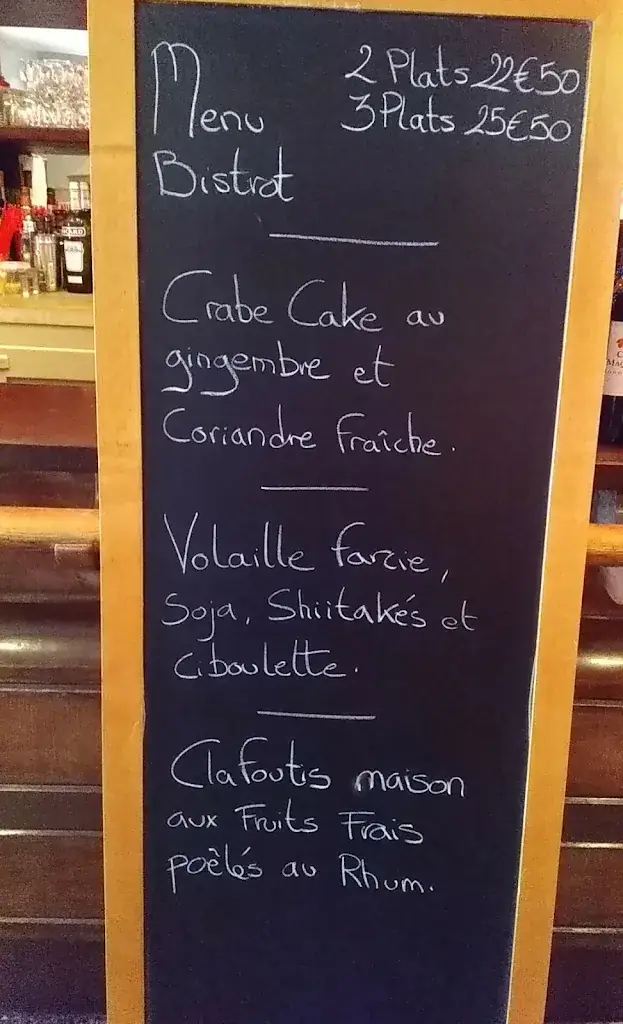 Menu
Bistrot
2 Plats 22€50
3 Plats 25€50
Crabe Cake au
gingembre et
Coriandre Fraîche.
Volaille farcie,
Soja, Shiitakés et
Ciboulette.
Clafoutis maison
aux Fruits Frais
poèlés au Rhum.